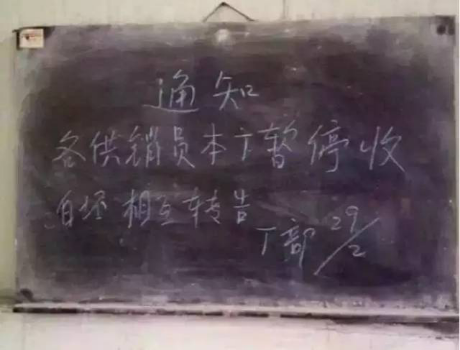 通知
各供销员本厂暂停收
白坯相互转告
厂部 29/2